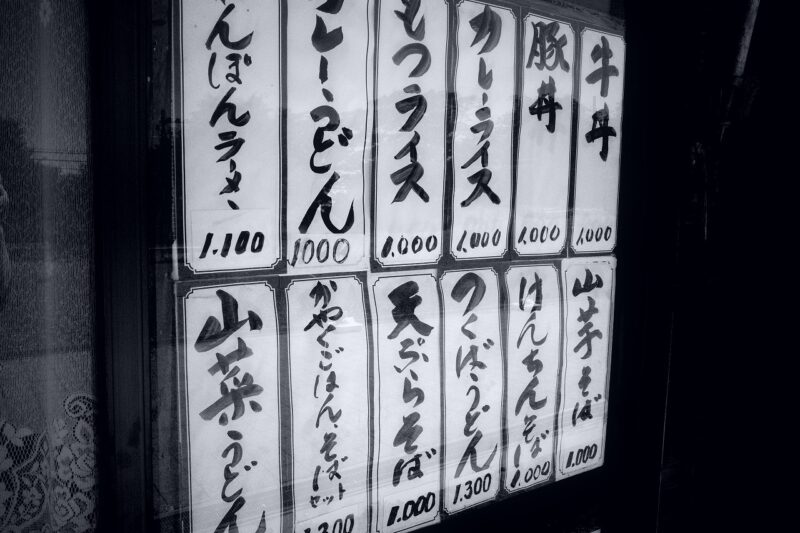 牛丼
1.000
豚丼
1.000
カレーライス
1.000
もつライス
1.000
カレーうどん
1000
ゃんぽんラーメン
1.100
山芋そば
1.000
けんちんそば
1.000
つくばうどん
1.300
天ぷらそば
1.000
かやくごはん、そば
セット
山菜うどん